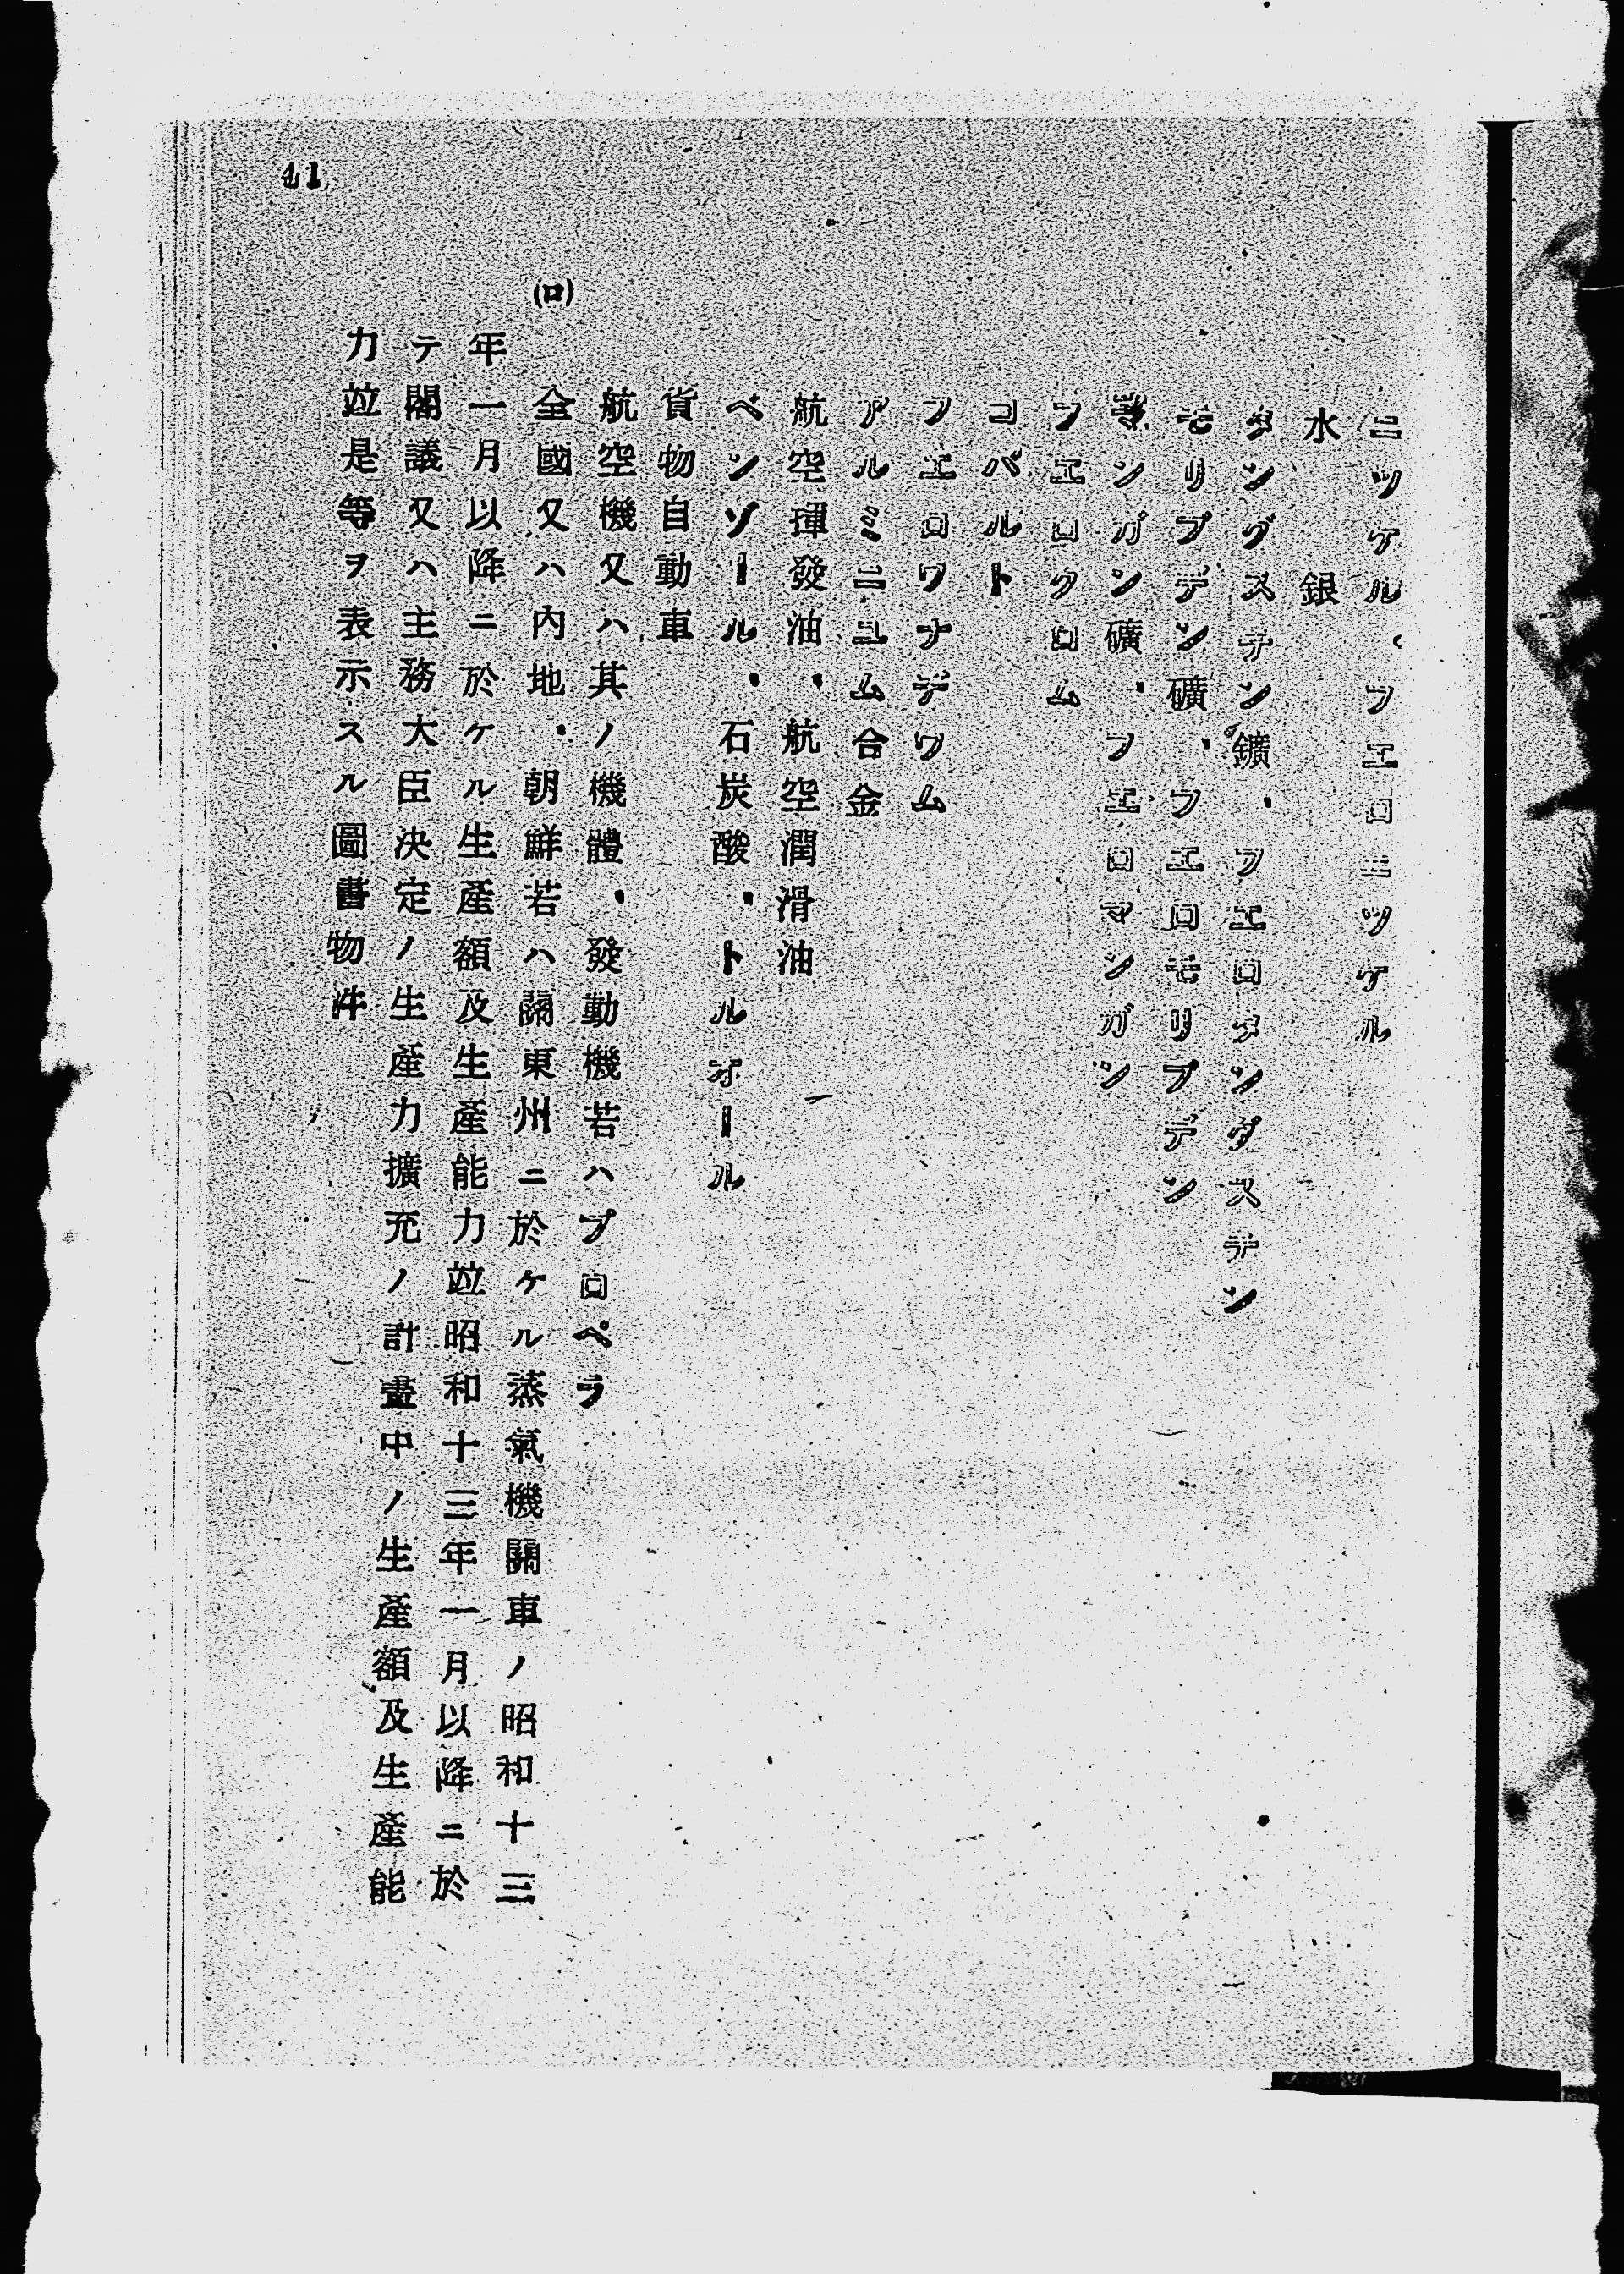 ニツケル、フエロニツケル
水銀
タングステン鑛、フエロタングステン
モリブデン礦、フエロモリブデン
マンガン礦、フエロマンガン
フエロクロム
コバルト
フエロワナデウム
アルミニユム合金
航空揮發油、航空潤滑油
ベンゾール、石炭酸、トルオール
貨物自動車
航空機又ハ其ノ機體、發動機若ハプロペラ
(ロ) 全國又ハ內地、朝鮮若ハ關東州ニ於ケル蒸氣機關車ノ昭和十三
年一月以降ニ於ケル生產額及生產能力竝昭和十三年一月以降ニ於
テ閣議又ハ主務大臣決定ノ生產力擴充ノ計畫中ノ生產額及生產能
力竝是等ヲ表示スル圖書物件
41